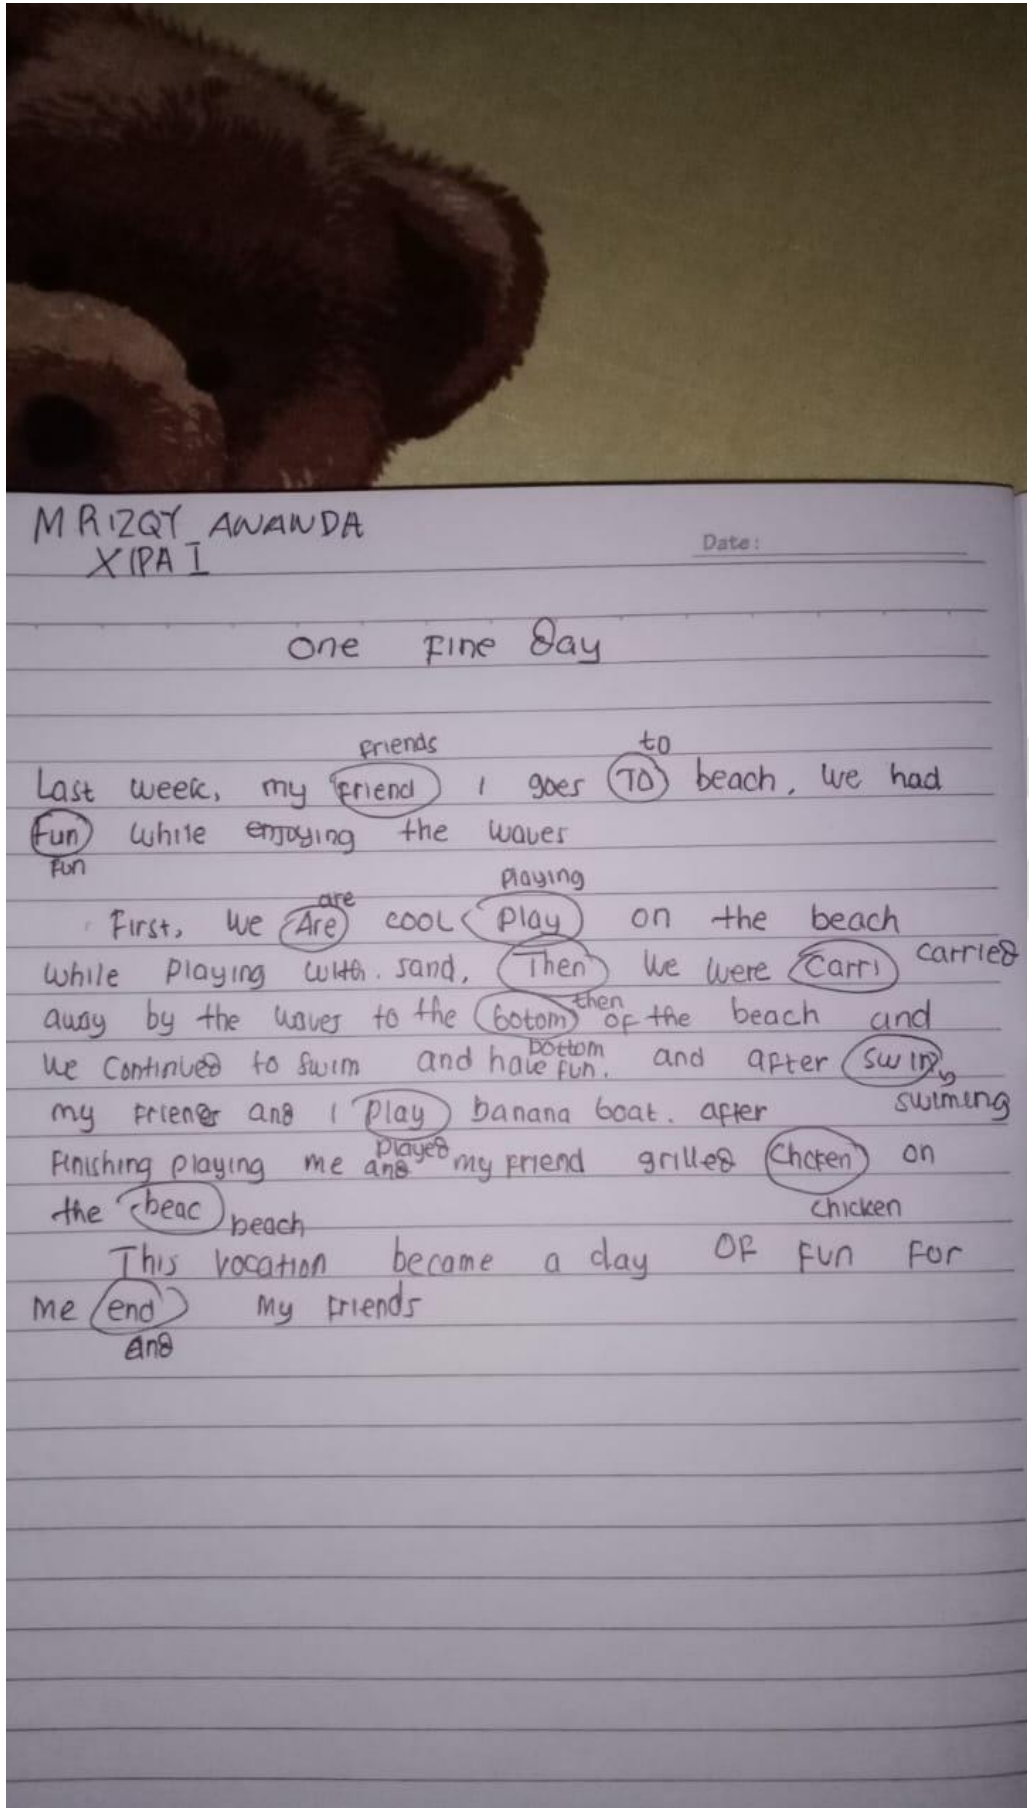 M RIZQY ANANDA
X IPA I
Date:
One Fine Day
friends to
Last week, my friend I goes TO beach, we had
fun while enjoying the waves
fun
are playing
First, we Are cool play on the beach
while playing with. sand, Then we were Carri carried
away by the waves to the botom then of the beach and
bottom
we continued to swim and have fun. and after swim
swiming
my friend and I play banana boat. after
played
finishing playing me and my friend grilled Chcken on
chicken
the beac beach
This vocation became a day OF fun for
me end my friends
and